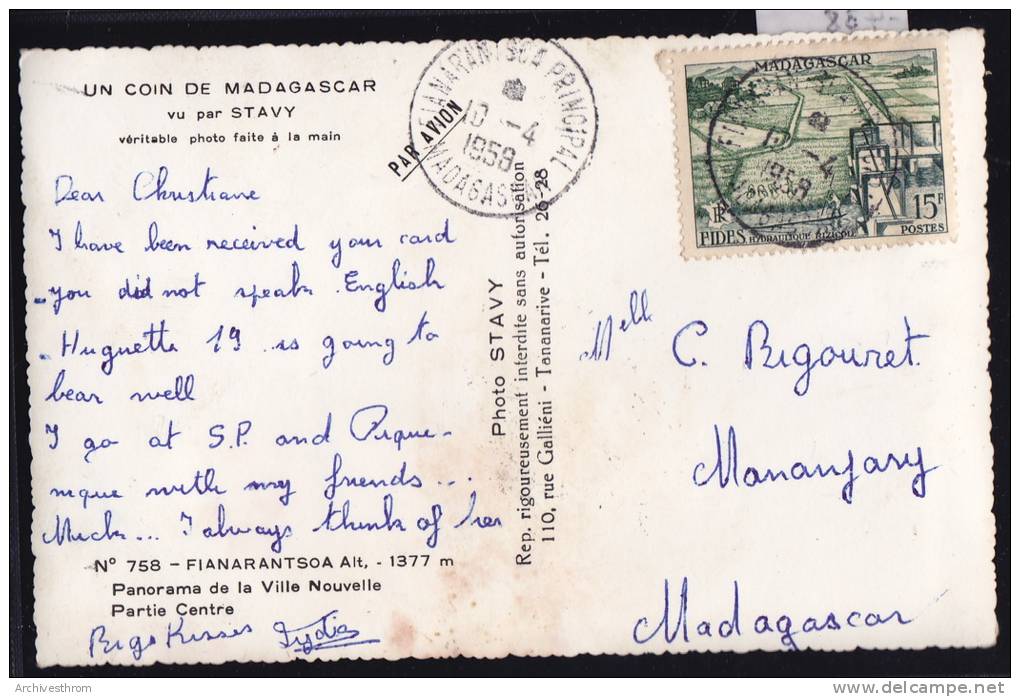 UN COIN DE MADAGASCAR
vu par STAVY
véritable photo faite à la main
Dear Christiane
I have been received your card
- you did not speak English
- Huguette 19 is going to
bear well
I go at S.P. and Pique-
nique with my friends...
Much... I always think of her
N° 758 - FIANARANTSOA Alt, - 1377 m
Panorama de la Ville Nouvelle
Partie Centre
Bigs Kisses Lydia
Photo STAVY
Rep. rigoureusement interdite sans autorisation
110, rue Galliéni - Tananarive - Tél. 26-28
PAR AVION
FIANARANTSOA PRINCIPAL
10 -4
1958
MADAGASCAR
MADAGASCAR
10 -4
1958
RF
15F
FIDES HYDRAULIQUE RIZICOLE POSTES
Melle C. Rigouret
Mananjary
Madagascar
Archivesthrom
www.delcampe.net